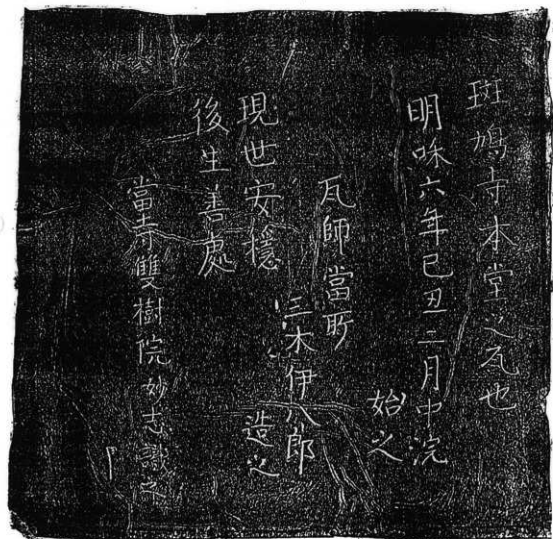 斑鳩寺本堂之瓦也
明咊六年己丑二月中浣
始之
瓦師當所
三木伊八郎
造之
現世安穏
後生善處
當寺雙樹院妙志識之